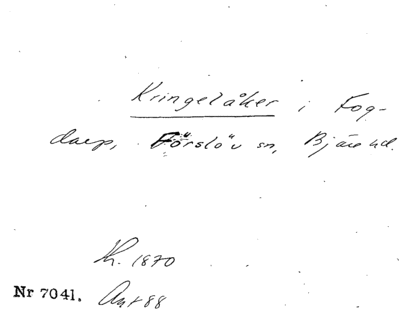 Kringelåker i Fog-
darp, Förslöv sn, Bjäre hd.
Kr. 1870
Nr 7041. Ant 88